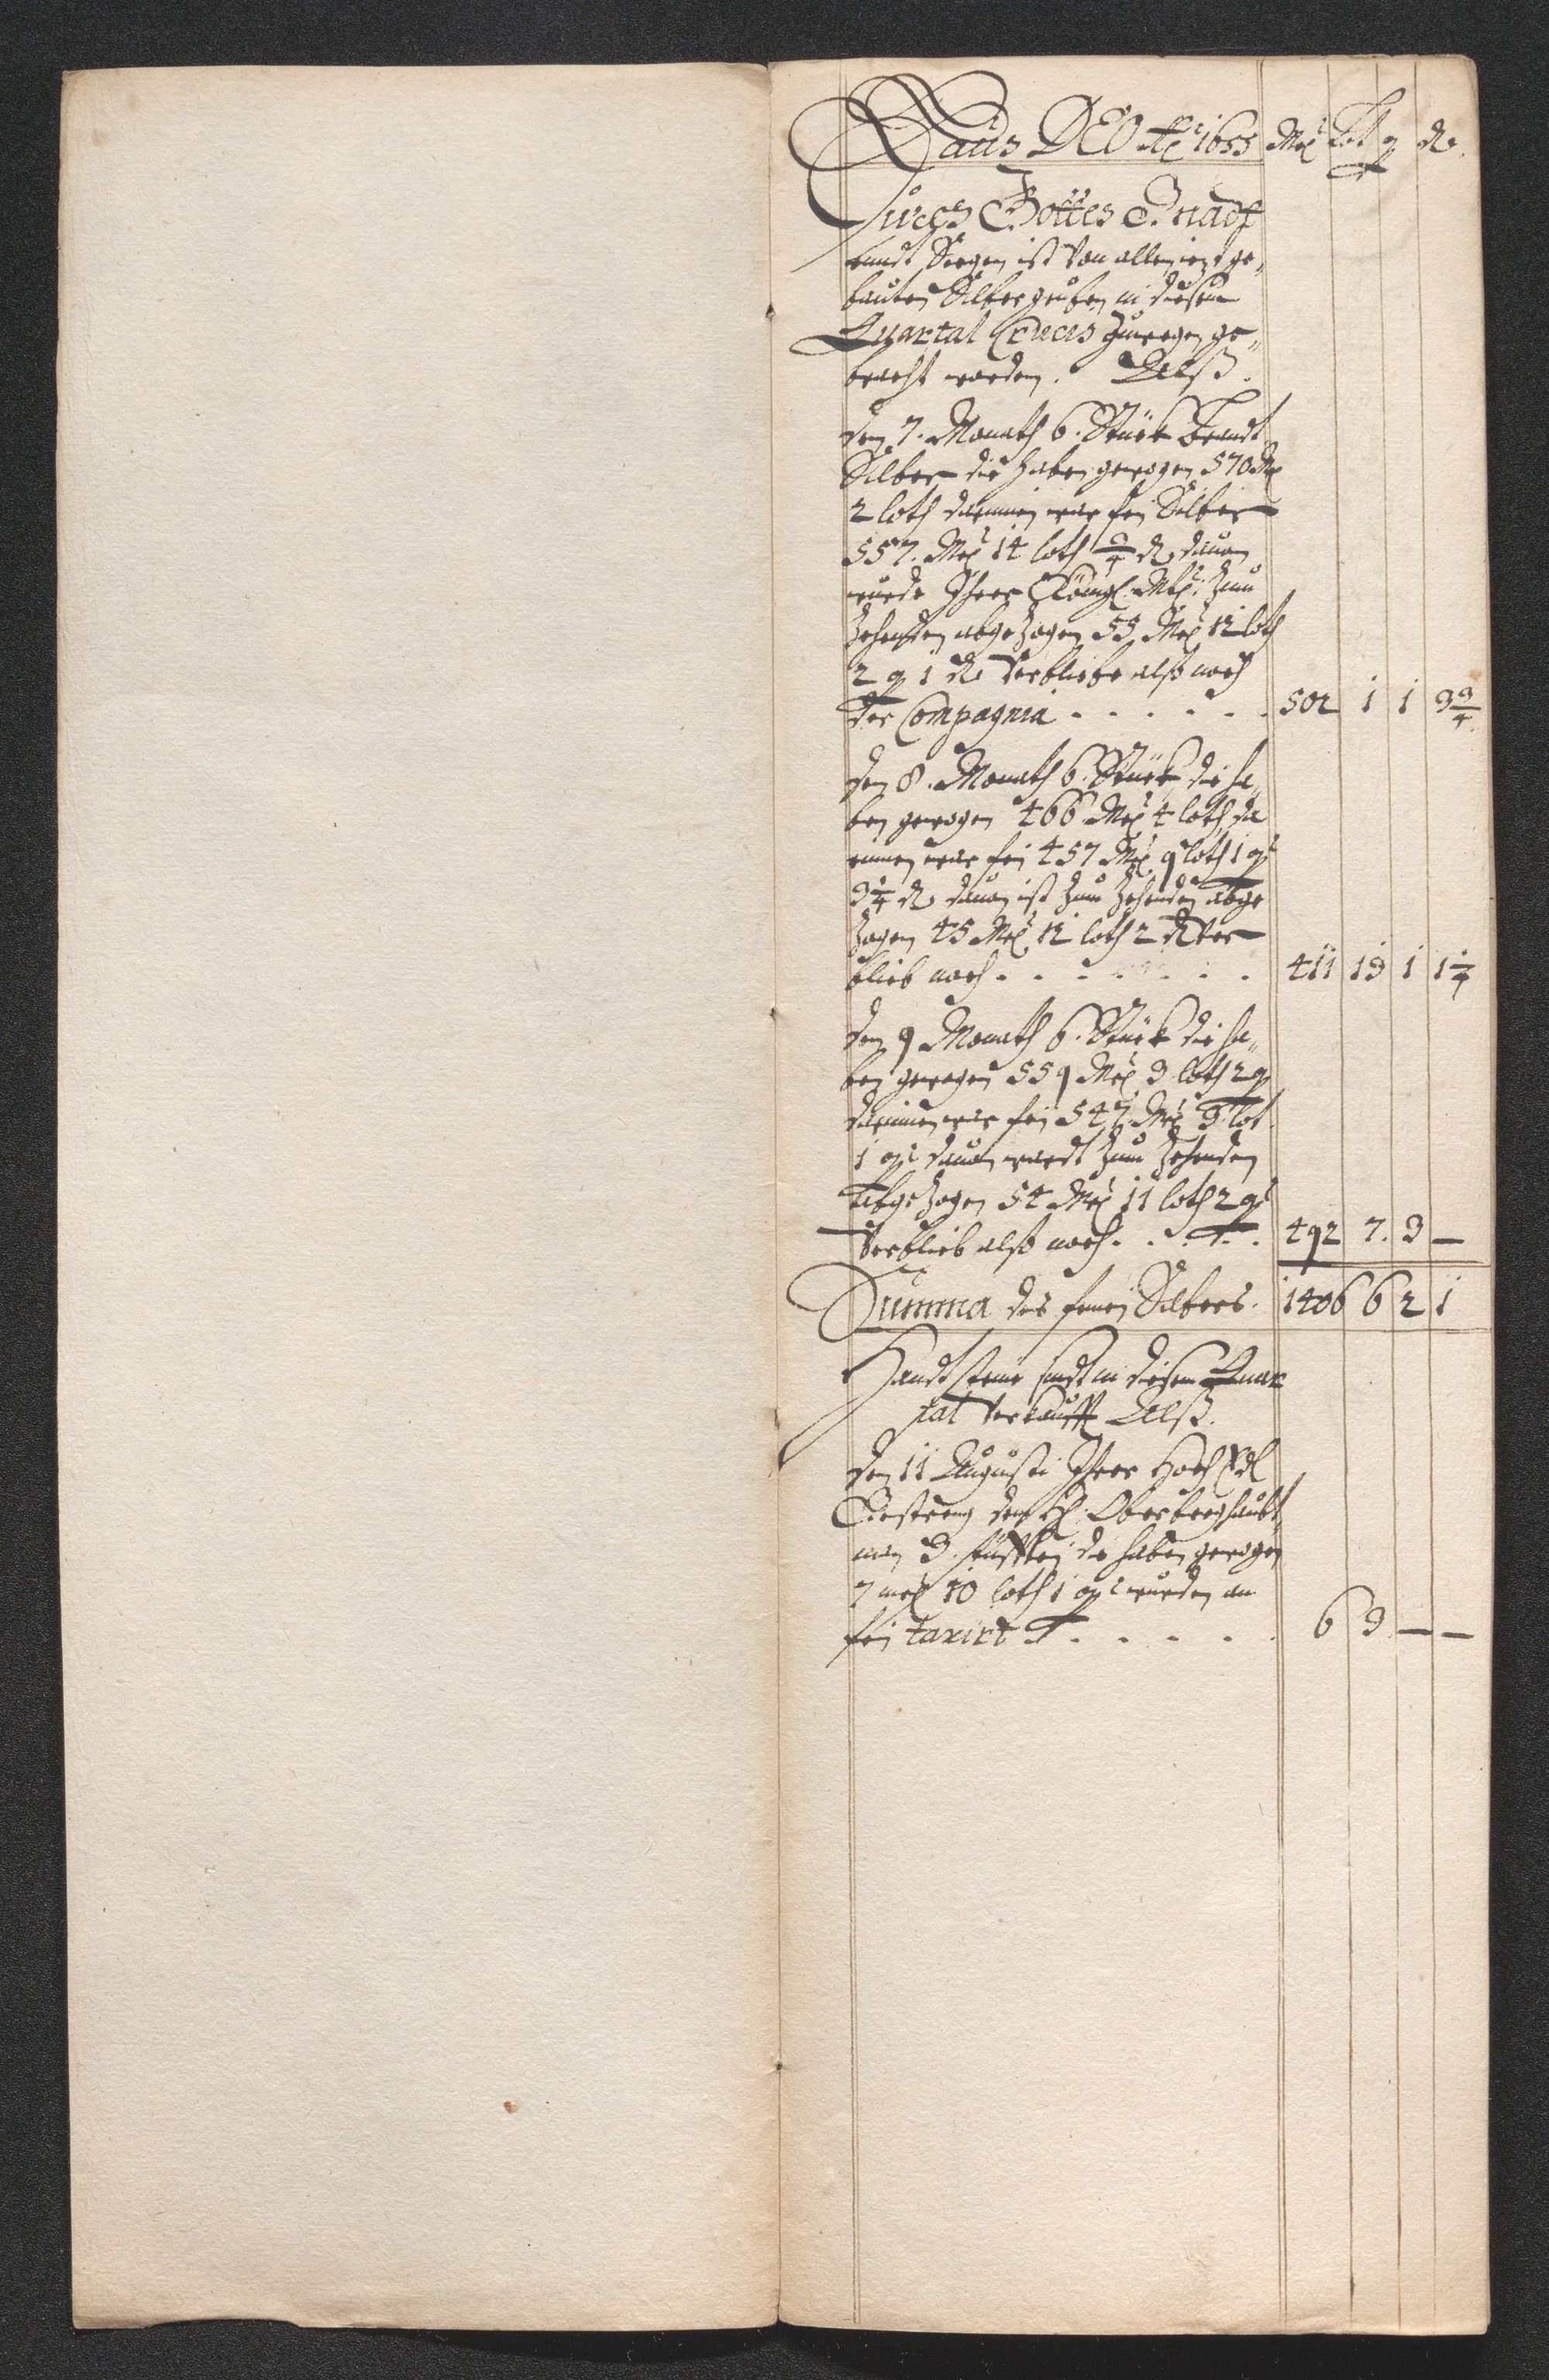 Laus DEO Ao 1655 Mk Lot q d
Durch Gottes Gnadt
unndt Seegen ist von allen iezt ge,,
bauten Silbergruben in diesem
Quartal Crucis zuwegen ge,,
bracht worden. Alß.
den 7. Monath 6. Stück Brandt
Silber die haben gewogen 570 Mk
2 loth darinnen war fein Silber
557. Mk 14 loth 3/4 d davon
wurde Ihrer Königl. Mtt: zum
Zehenden abgezogen 55 Mk 12 loth
2 q 1 d Verbliebe alß noch
der Compagnia . . . . . . 502 1 1 3 3/4
den 8. Monath 6. Stück die ha,,
ben gewogen 466 Mk 4 loth da
rinnen war fein 457 Mk 9 loth 1 q
3 1/4 d davon ist zum Zehenden abge
zogen 45 Mk 12 loth 2 d Ver
blieb noch . . . . . . . 411 13 1 1 1/4
den 9 Monath 6. Stück die ha,,
ben gewogen 559 Mk 3 loth 2 q
darinnen war fein 547 Mk 3 lot
1 q davon wardt zum Zehenden
abgezogen 54 Mk 11 loth 2 q
Verblieb alß noch . . . . 492 7. 3 —
Summa des feinen Silbers. 1406 6 2 1
Handtsteine sindt in diesem Quar
tal Verkaufft Alß.
den 11 Augusti Ihrer Hoch Edl
Gestreng dem H: Oberberghaubt,,
man 3. stufflein die haben gewogen
7 mk 10 loth 1 q wurden an
fein taxirt . . . . . 6 3 — —